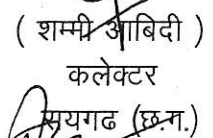 ( शम्मी आबिदी )
कलेक्टर
रायगढ (छ.ग.)